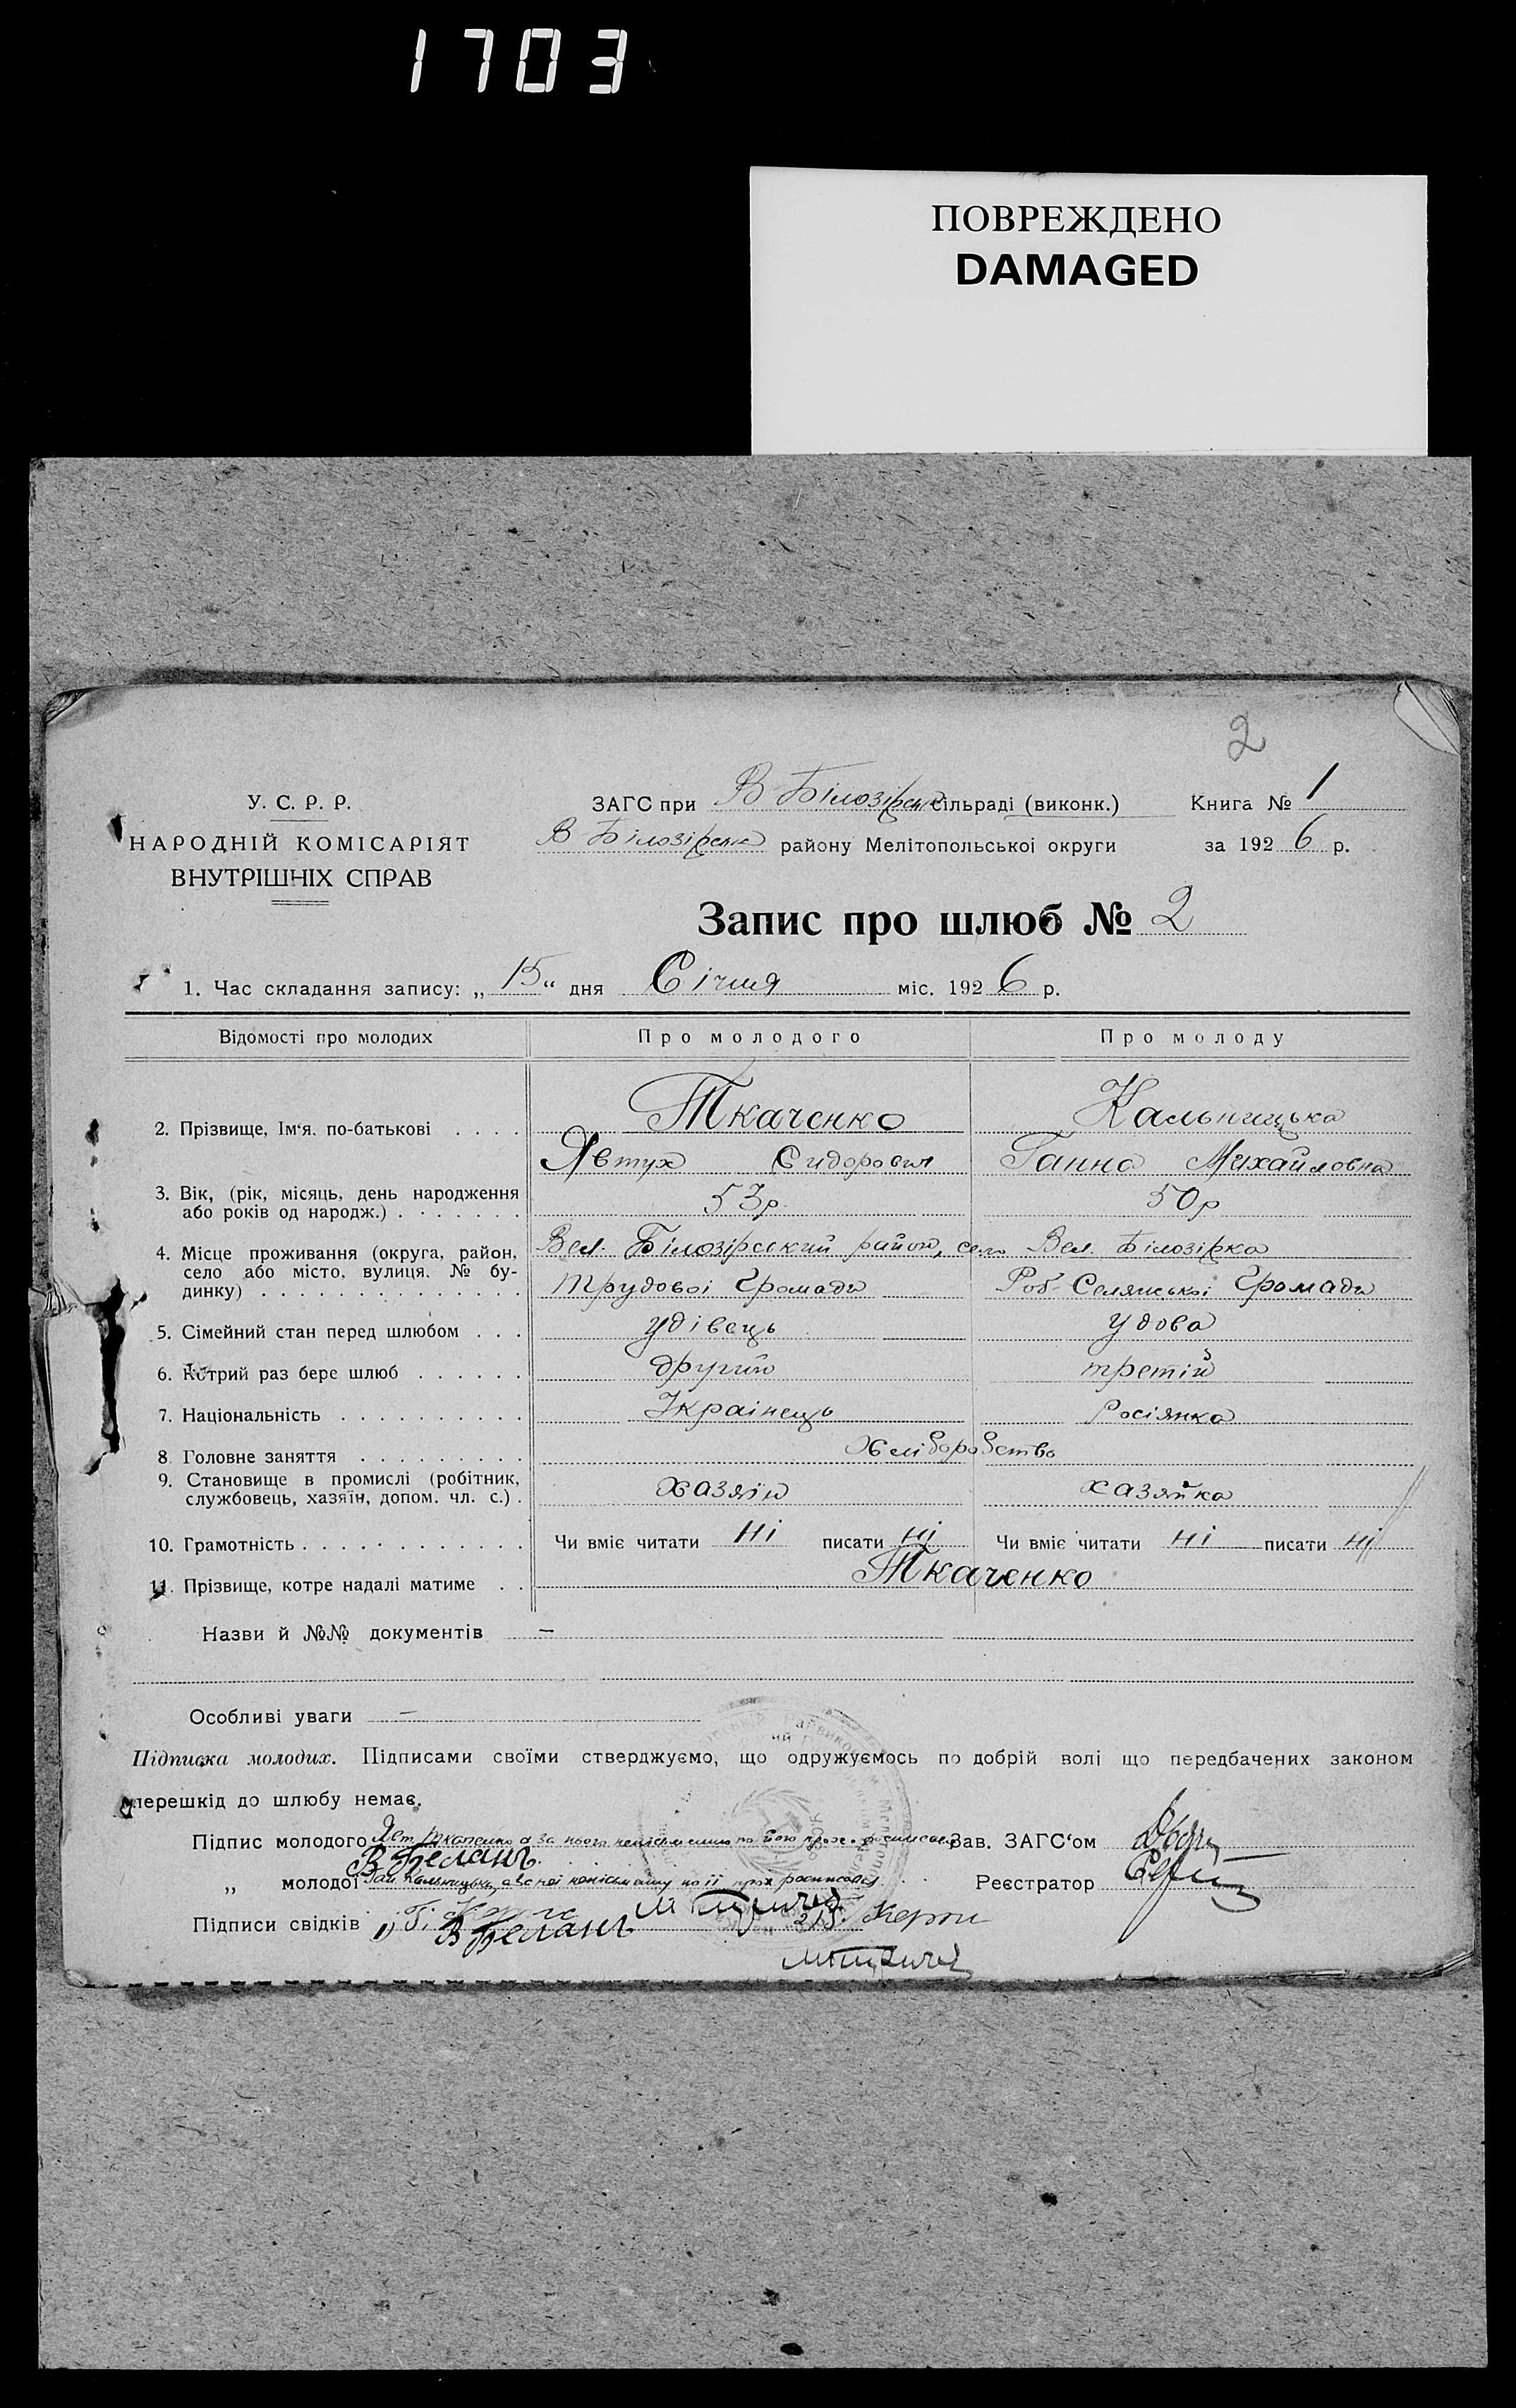 1703
ПОВРЕЖДЕНО
DAMAGED
2
У. С. Р. Р.
НАРОДНІЙ КОМІСАРІЯТ
ВНУТРІШНІХ СПРАВ
ЗАГС при В Білозірськ сільраді (виконк.) Книга № 1
В Білозірськ району Мелітопольської округи за 1926 р.
Запис про шлюб № 2
1. Час складання запису: „ 15 “ дня Січня міс. 1926 р.
Відомості про молодих Про молодого Про молоду
2. Прізвище, Ім‘я, по-батькові . . . . Ткаченко Кальницька
Явтух Сидорович Ганна Михайловна
3. Вік, (рік, місяць, день народження
або років од народж.) . . . . . . 53р. 50р
4. Місце проживання (округа, район,
село або місто, вулиця, № бу-
динку) . . . . . . . . . . . . . .
Вел. Білозірський район, село Вел. Білозірка
Трудової Громади Роб-Селянської Громади
5. Сімейний стан перед шлюбом . . . удівець удова
6. Котрий раз бере шлюб . . . . . . другий третій
7. Національність . . . . . . . . . . Українець Росіянка
8. Головне заняття . . . . . . . . . Хліборобство
9. Становище в промислі (робітник,
службовець, хазяїн, допом. чл. с.) . хазяїн хазяйка
10. Грамотність . . . . . . . . . . . . Чи вміє читати ні писати ні Чи вміє читати ні писати ні
11. Прізвище, котре надалі матиме . . Ткаченко
Назви й №№ документів —
Особливі уваги —
Підписка молодих. Підписами своїми стверджуємо, що одружуємось по добрій волі що передбачених законом
перешкід до шлюбу немає.
Підпис молодого Ткаченко а за нього неписьменного по його прох. Зав. ЗАГС‘ом
В Белань
„ молодої Ган Кальницька, а за неї неписьменну по її прох расписався Реєстратор
Підписи свідків 1)
В Белань